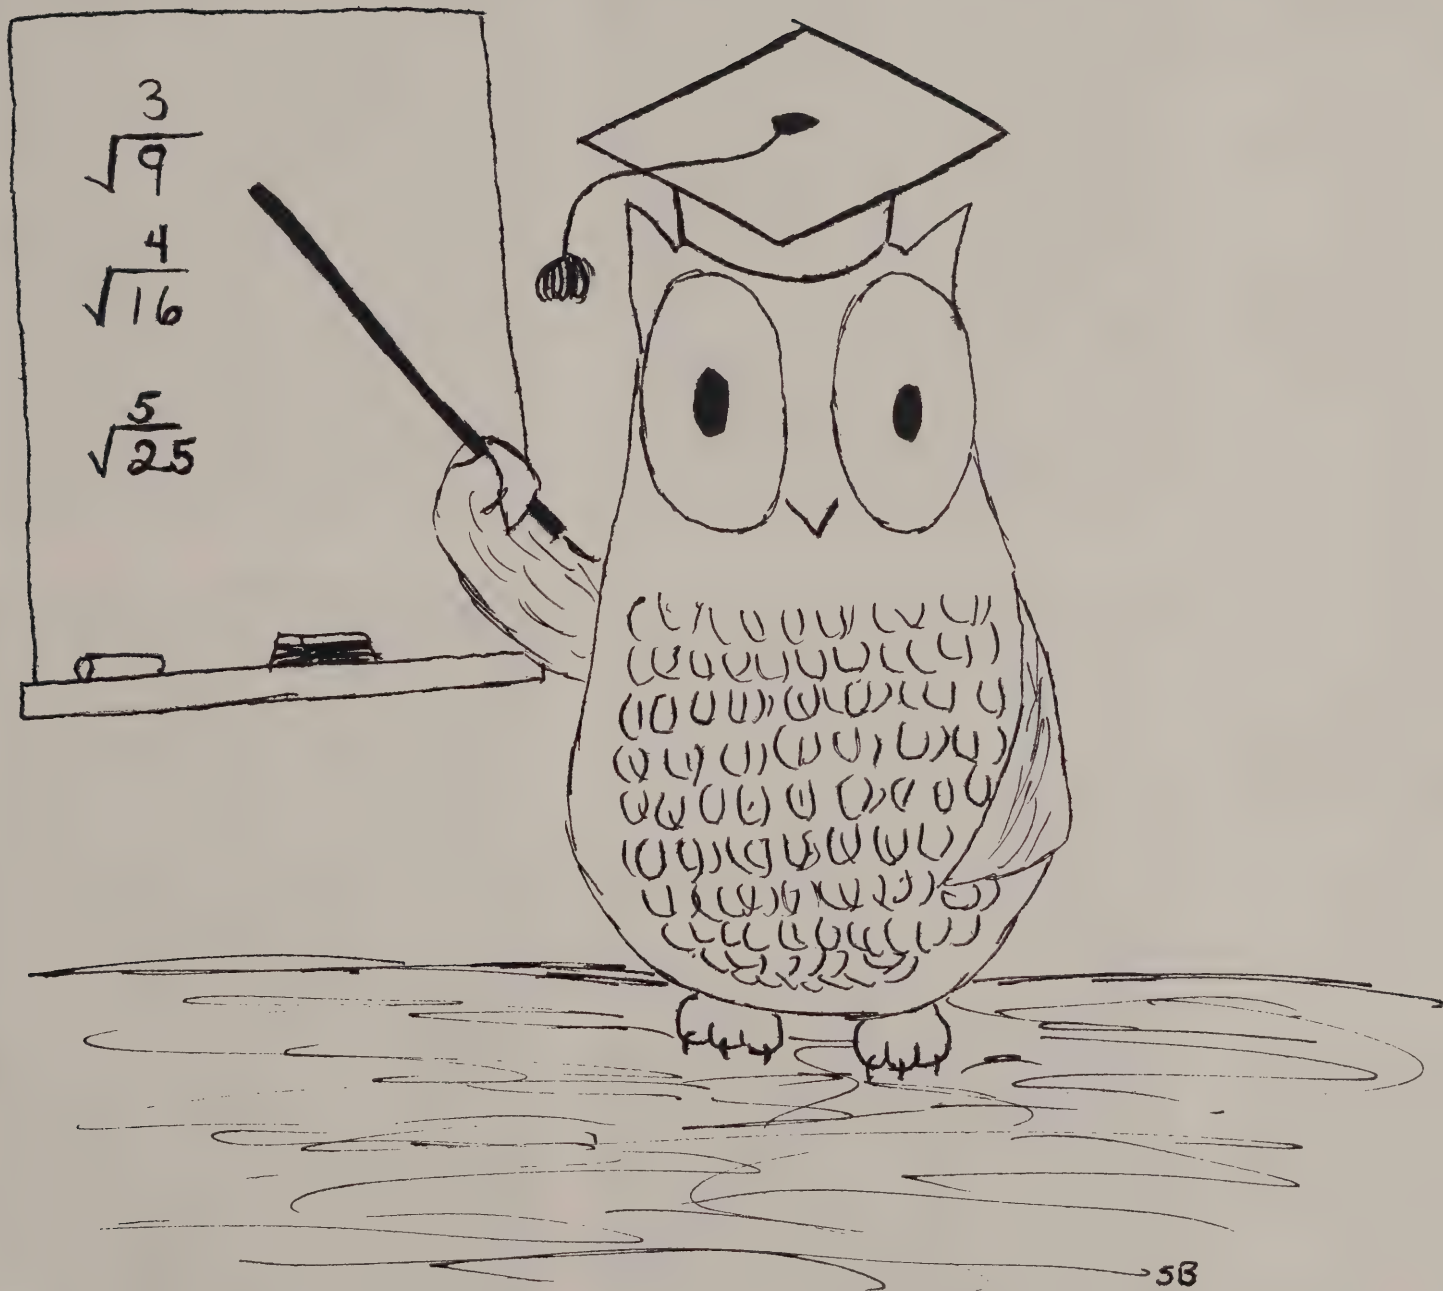 3
√9
4
√16
5
√25
SB